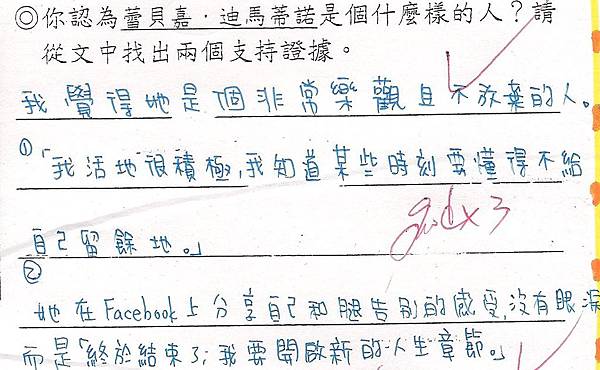 ◎你認為蕾貝嘉．迪馬蒂諾是個什麼樣的人？請
從文中找出兩個支持證據。
我覺得她是個非常樂觀且不放棄的人。
①「我活地很積極,我知道某些時刻要懂得不給
good x3
自己留餘地。」
②
她在Facebook上分享自己和腿告別的感受,沒有眼淚
而是「終於結束了;我要開啟新的人生章節。」